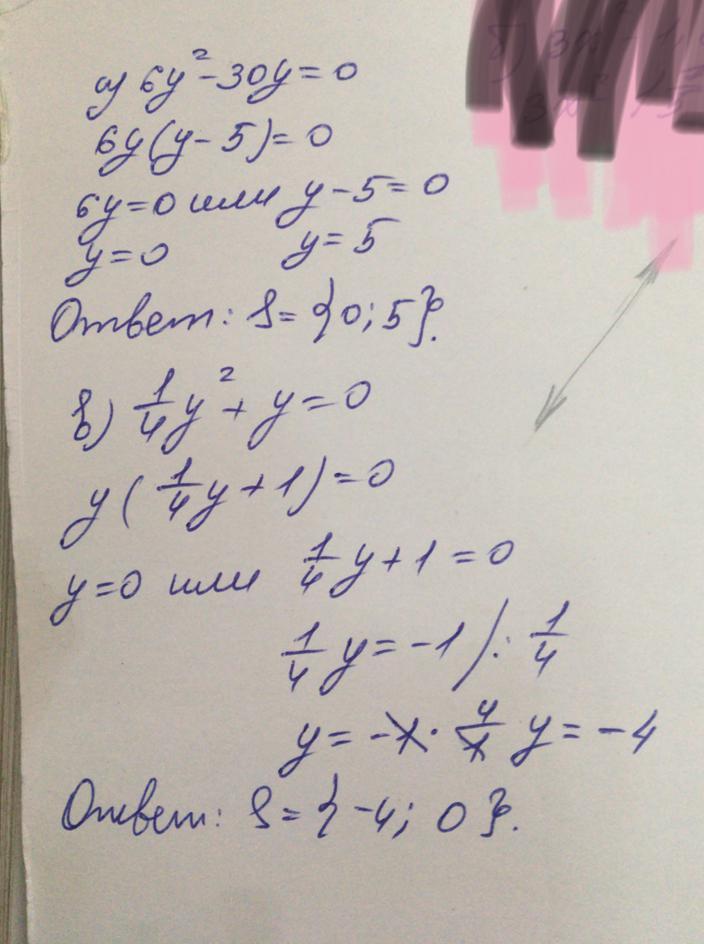 а) 6y² - 30y = 0
6y(y - 5) = 0
6y = 0 или y - 5 = 0
y = 0 y = 5
Ответ: S = {0; 5}.
в) 1/4 y² + y = 0
y(1/4 y + 1) = 0
y = 0 или 1/4 y + 1 = 0
1/4 y = -1 /: 1/4
y = -1 · 4/1 y = -4
Ответ: S = {-4; 0}.